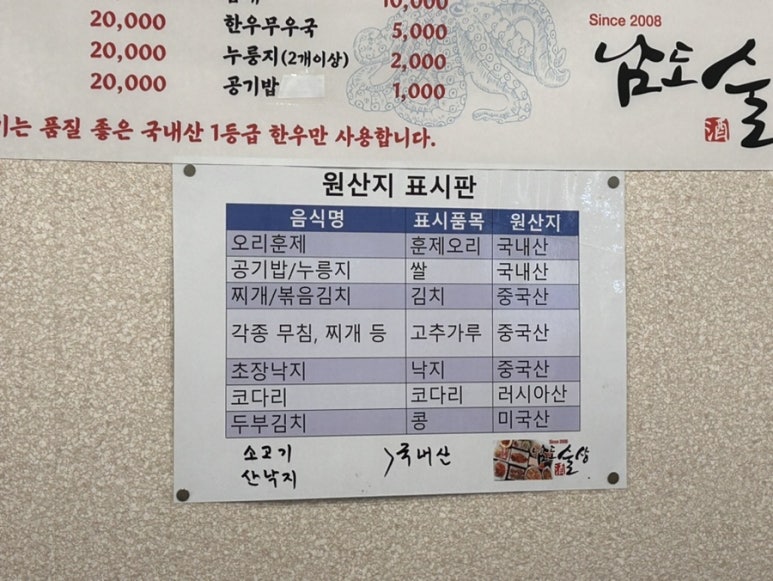 10,000
20,000 한우무우국 5,000
20,000 누룽지(2개이상) 2,000
20,000 공기밥 1,000
Since 2008
남도술
酒
기는 품질 좋은 국내산 1등급 한우만 사용합니다.
원산지 표시판
음식명 표시품목 원산지
오리훈제 훈제오리 국내산
공기밥/누룽지 쌀 국내산
찌개/볶음김치 김치 중국산
각종 무침, 찌개 등 고추가루 중국산
초장낙지 낙지 중국산
코다리 코다리 러시아산
두부김치 콩 미국산
소고기
산낙지 > 국내산
Since 2008
남도술상